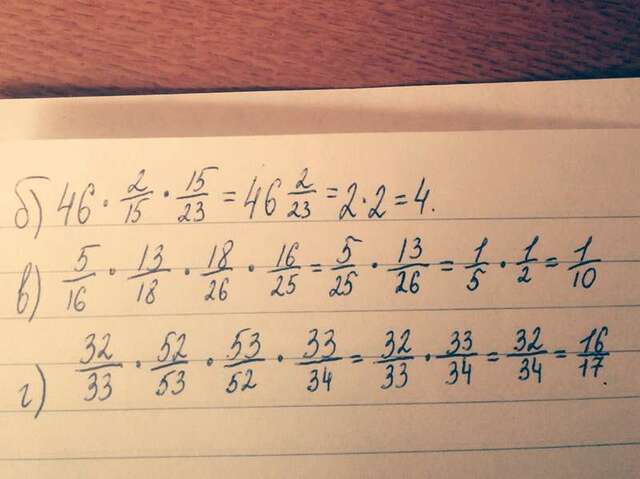 б) 46 · 2/15 · 15/23 = 46 2/23 = 2·2 = 4.
в) 5/16 · 13/18 · 18/26 · 16/25 = 5/25 · 13/26 = 1/5 · 1/2 = 1/10
г) 32/33 · 52/53 · 53/52 · 33/34 = 32/33 · 33/34 = 32/34 = 16/17.